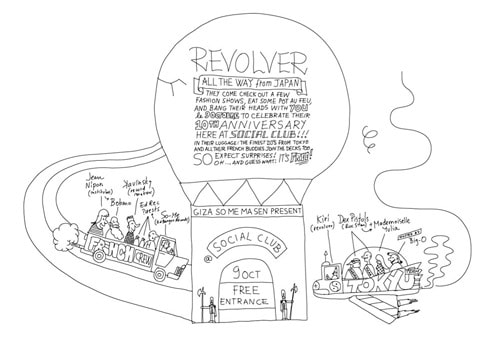 REVOLVER
ALL THE WAY from JAPAN
THEY COME CHECK OUT A FEW
FASHION SHOWS, EAT SOME POT AU FEU,
AND BANG THEIR HEADS WITH YOU
TO CELEBRATE THEIR
10TH ANNIVERSARY
HERE AT SOCIAL CLUB!!!
IN THEIR LUGGAGE: THE FINEST DJ'S FROM TOKYO
AND ALL THEIR FRENCH BUDDIES JOIN THE DECKS TOO
SO EXPECT SURPRISES! IT'S FREE!
OH... AND GUESS WHAT!
GIZA SO ME MA SEN PRESENT
@ SOCIAL CLUB
9 OCT
FREE
ENTRANCE
Jean
Nipon
(institubes)
Bobmo
Ed Rec
guests
So-Me
FRENCH CREW
Kiri
(revolver)
Dex Pistols
Mademoiselle
Yulia
HOSTED BY
Big-O
TOKYO